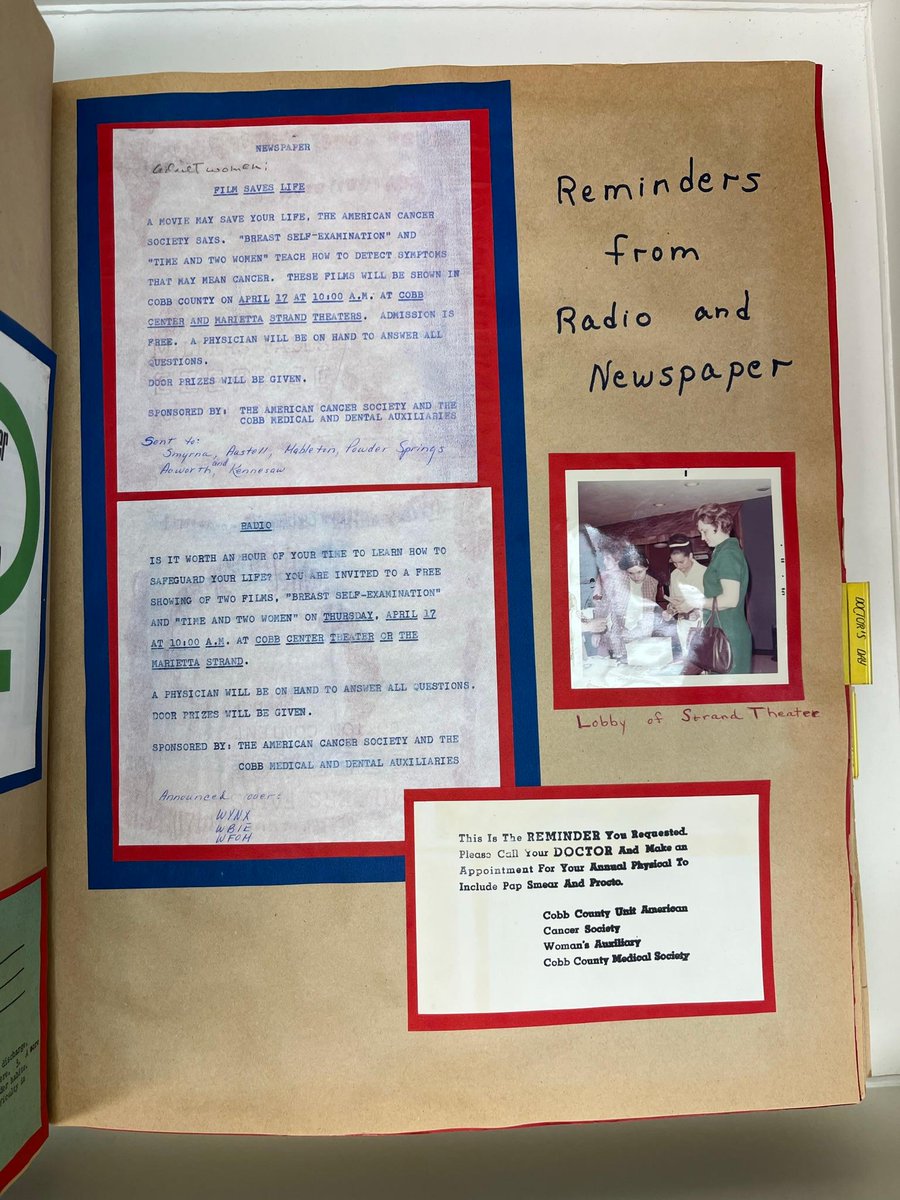 NEWSPAPER
Adult women;
FILM SAVES LIFE
A MOVIE MAY SAVE YOUR LIFE, THE AMERICAN CANCER
SOCIETY SAYS. "BREAST SELF-EXAMINATION" AND
"TIME AND TWO WOMEN" TEACH HOW TO DETECT SYMPTOMS
THAT MAY MEAN CANCER. THESE FILMS WILL BE SHOWN IN
COBB COUNTY ON APRIL 17 AT 10:00 A.M. AT COBB
CENTER AND MARIETTA STRAND THEATERS. ADMISSION IS
FREE. A PHYSICIAN WILL BE ON HAND TO ANSWER ALL
QUESTIONS.
DOOR PRIZES WILL BE GIVEN.
SPONSORED BY: THE AMERICAN CANCER SOCIETY AND THE
COBB MEDICAL AND DENTAL AUXILIARIES
Sent to:
Smyrna, Austell, Mableton, Powder Springs
Acworth, and Kennesaw
RADIO
IS IT WORTH AN HOUR OF YOUR TIME TO LEARN HOW TO
SAFEGUARD YOUR LIFE? YOU ARE INVITED TO A FREE
SHOWING OF TWO FILMS, "BREAST SELF-EXAMINATION"
AND "TIME AND TWO WOMEN" ON THURSDAY, APRIL 17
AT 10:00 A.M. AT COBB CENTER THEATER OR THE
MARIETTA STRAND.
A PHYSICIAN WILL BE ON HAND TO ANSWER ALL QUESTIONS.
DOOR PRIZES WILL BE GIVEN.
SPONSORED BY: THE AMERICAN CANCER SOCIETY AND THE
COBB MEDICAL AND DENTAL AUXILIARIES
Announced over:
WYNX
WBIE
WFOM
Reminders
from
Radio and
Newspaper
Lobby of Strand Theater
DOCTOR'S DAY
This Is The REMINDER You Requested.
Please Call Your DOCTOR And Make an
Appointment For Your Annual Physical To
Include Pap Smear And Procto.
Cobb County Unit American
Cancer Society
Woman's Auxiliary
Cobb County Medical Society